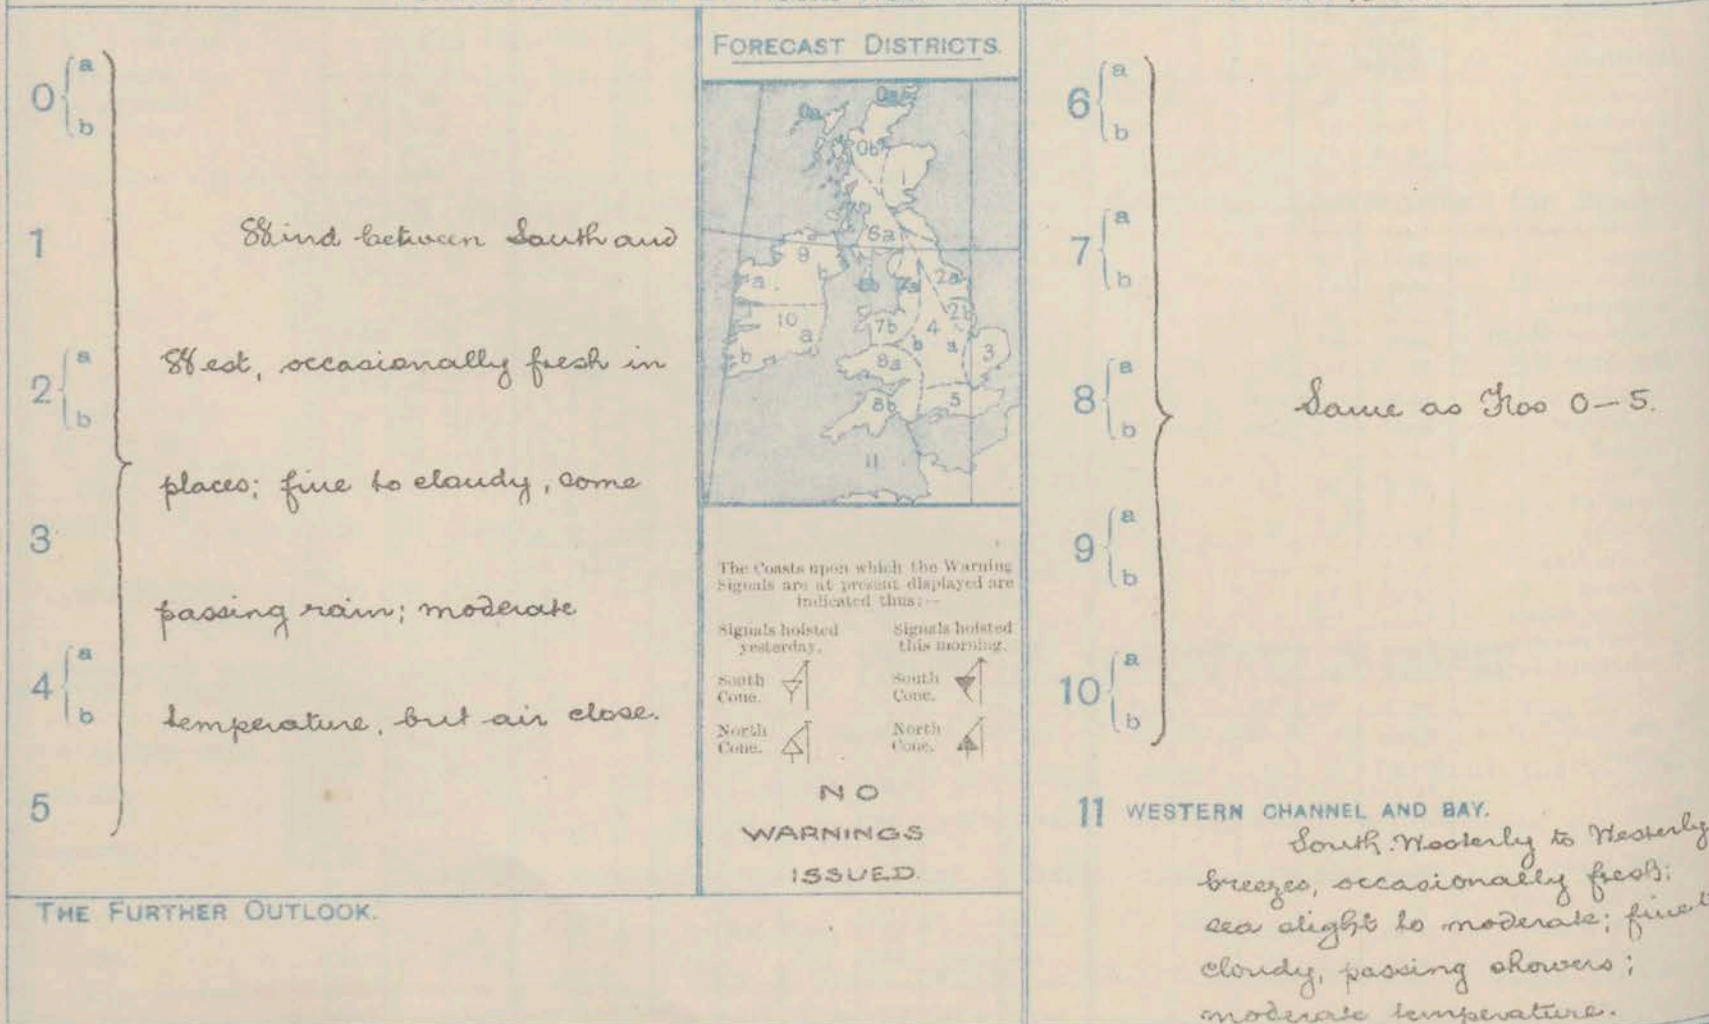 0 { a
b
1
2 { a
b
3
4 { a
b
5
Wind between South and
West, occasionally fresh in
places; fine to cloudy, some
passing rain; moderate
temperature, but air close.
THE FURTHER OUTLOOK.
FORECAST DISTRICTS.
0a
0a
0b
6a
9
a
b
6b
7a
2a
10
a
b
7b
4
b
a
2b
3
8a
8b
5
11
The Coasts upon which the Warning
Signals are at present displayed are
indicated thus:—
Signals hoisted
yesterday.
Signals hoisted
this morning.
South
Cone.
South
Cone.
North
Cone.
North
Cone.
NO
WARNINGS
ISSUED.
6 { a
b
7 { a
b
8 { a
b
9 { a
b
10 { a
b
Same as Nos 0–5.
11 WESTERN CHANNEL AND BAY.
South Westerly to Westerly
breezes, occasionally fresh;
sea slight to moderate; fine
cloudy, passing showers;
moderate temperature.